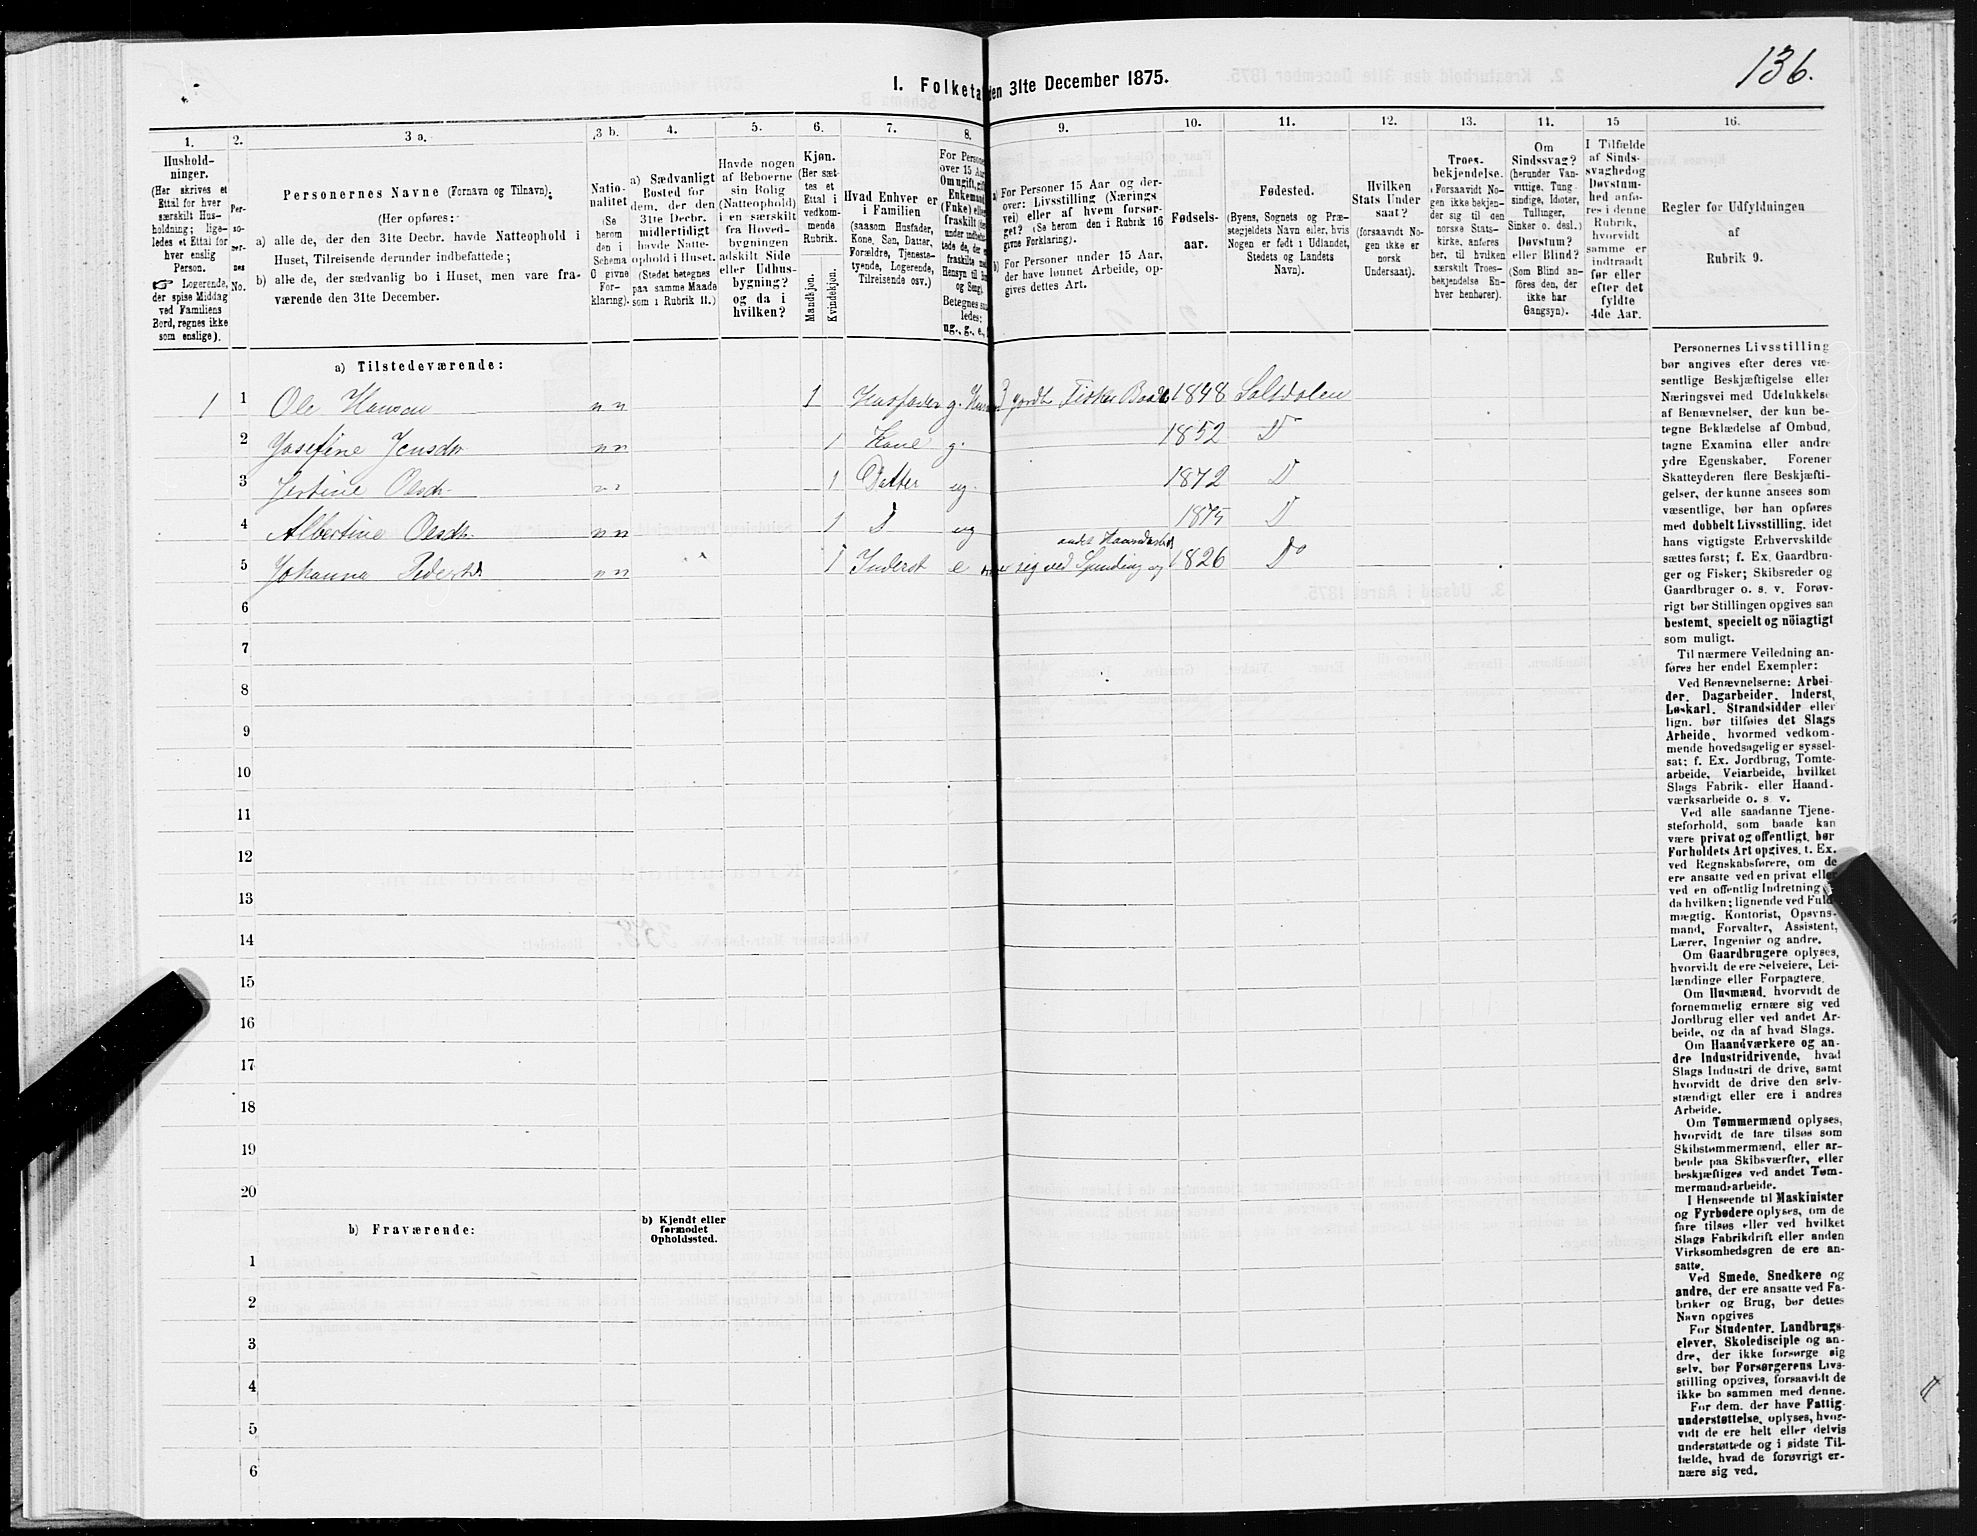 136.
I. Folketa
den 31te December 1875.
1.
2.
3 a.
3 b.
4.
5.
6.
7.
8.
9.
10.
11.
12.
13.
14.
15
16.
Hushold-
ninger.
(Her skrives et
Ettal for hver
særskilt Hus-
holdning; lige-
ledes et Ettal for
hver enslig
Person.
☞ Logerende,
der spise Middag
ved Familiens
Bord, regnes ikke
som enslige).
Per-
so-
ner-
nes
No.
Personernes Navne (Fornavn og Tilnavn).
(Her opføres:
a) alle de, der den 31te Decbr. havde Natteophold i
Huset, Tilreisende derunder indbefattede;
b) alle de, der sædvanlig bo i Huset, men vare fra-
værende den 31te December.
Natio-
nalitet
(Se
herom
den i
Schema
C givne
For-
klaring).
a) Sædvanligt
Bosted for
dem, der den
31te Decbr.
midlertidigt
havde Natte-
ophold i Huset.
(Stedet betegnes
paa samme Maade
som i Rubrik 11.)
Havde nogen
af Beboerne
sin Bolig
(Natteophold)
i en særskilt
fra Hoved-
bygningen
adskilt Side
eller Udhus-
bygning?
og da i
hvilken?
Kjøn.
(Her sæt-
tes et
Ettal i
vedkom-
mende
Rubrik.
Mandkjøn.
Kvindekjøn.
Hvad Enhver er
i Familien
(saasom Husfader,
Kone, Søn, Datter,
Forældre, Tjeneste-
tyende, Logerende,
Tilreisende osv.)
For Persone
over 15 Aar
Om ugift, gift
Enkemand
(Enke) elle
fraskilt
Betegnes saa
ledes:
ug., g., e.,
a) For Personer 15 Aar og der-
over: Livsstilling (Nærings
vei) eller af hvem forsør-
get? (Se herom den i Rubrik 16
givne Forklaring).
b) For Personer under 15 Aar,
der have lønnet Arbeide, op-
gives dettes Art.
Fødsels-
aar.
Fødested.
(Byens, Sognets og Præ-
stegjeldets Navn eller, hvis
Nogen er født i Udlandet,
Stedets og Landets
Navn).
Hvilken
Stats Under
saat?
(forsaavidt No-
gen ikke er
norsk
Undersaat).
Troes-
bekjendelse.
(Forsaavidt No-
gen ikke bekjen-
der sig til den
norske Stats-
kirke, anføres
her, til hvilken
særskilt Troes-
bekjendelse En-
hver henhører).
Om
Sindssvag?
(herunder Van-
vittige, Tung-
sindige, Idioter,
Tullinger,
Sinker o. desl.)
Døvstum?
eller Blind?
(Som Blind an-
føres den, der
ikke har
Gangsyn).
I Tilfælde
af Sinds-
svaghed og
Døvstum-
hed anfø-
res i denne
Rubrik,
hvorvidt
samme er
indtraadt
før eller
efter det
fyldte
4de Aar.
Regler for Udfyldningen
af
Rubrik 9.
a) Tilstedeværende:
1 1 Ole Hansen nn 1 Husfader g. Fisker 1848 Saltdalen
2 Josefine Jensdr nn 1 Kone g. 1852 D
3 Jertine Olsdr nn 1 Datter ug. 1872 D
4 Albertine Olsdr. nn 1 D ug 1875 D
andet
5 Johanna Pedersd nn 1 Inderst e sig ved Spinding og 1826 Do
6
7
8
9
10
11
12
13
14
15
16
17
18
19
20
b) Fraværende:
b) Kjendt eller
formodet
Opholdssted.
1
2
3
4
5
6
Personernes Livsstilling
bør angives efter deres væ-
sentlige Beskjæftigelse eller
Næringsvei med Udelukkelse
af Benævnelser, der kun be-
tegne Beklædelse af Ombud,
tagne Examina eller andre
ydre Egenskaber. Forener
Skatteyderen flere Beskjæfti-
gelser, der kunne ansees som
væsentlige, bør han opføres
med dobbelt Livsstilling, idet
hans vigtigste Erhvervskilde
sættes først; f. Ex. Gaardbru-
ger og Fisker; Skibsreder og
Gaardbruger o. s. v. Forøv-
rigt bør Stillingen opgives saa
bestemt, specielt og nöiagtigt
som muligt.
Til nærmere Veiledning an-
føres her endel Exempler:
Ved Benævnelserne: Arbei-
der, Dagarbeider, Inderst,
Løskarl, Strandsidder eller
lign. bør tilføies det Slags
Arbeide, hvormed vedkom-
mende hovedsagelig er syssel-
sat; f. Ex. Jordbrug, Tomte-
arbeide, Veiarbeide, hvilket
Slags Fabrik- eller Haand-
værksarbeide o. s. v.
Ved alle saadanne Tjene-
steforhold, som baade kan
være privat og offentligt, bør
Forholdets Art opgives, t. Ex.
ved Regnskabsførere, om de
ere ansatte ved en privat eller
ved en offentlig Indretning
da hvilken; lignende ved Fuld
mægtig, Kontorist, Opsyns-
mand, Forvalter, Assistent,
Lærer, Ingeniør og andre.
Om Gaardbrugere oplyses,
hvorvidt de ere Selveiere, Lei-
lændinge eller Forpagtere.
Om Husmænd, hvorvidt de
fornemmelig ernære sig ved
Jordbrug eller ved andet Ar-
beide, og da af hvad Slags.
Om Haandværkere og an-
dre Industridrivende, hvad
Slags Industri de drive, samt
hvorvidt de drive den selv-
stændigt eller ere i andres
Arbeide.
Om Tømmermænd oplyses,
hvorvidt de fare tilsøs som
Skibstømmermænd, eller ar-
beide paa Skibsværfter, eller
beskjæftiges ved andet Tøm-
mermandsarbeide.
I Henseende til Maskinister
og Fyrbødere oplyses, om de
fare tilsøs eller ved hvilket
Slags Fabrikdrift eller anden
Virksomhedsgren de ere an-
satte.
Ved Smede, Snedkere og
andre, der ere ansatte ved Fa-
briker og Brug, bør dettes
Navn opgives
For Studenter, Landbrugs-
elever, Skoledisciple og an-
dre, der ikke forsørge sig
selv, bør Forsørgerens Livs-
stilling opgives, forsaavidt de
ikke bo sammen med denne.
For dem, der have Fattig-
understøttelse, oplyses, hvor-
vidt de ere helt eller delvis
understøttede og i sidste Til-
fælde, hvad de forøvrigt er-
nære sig ved.